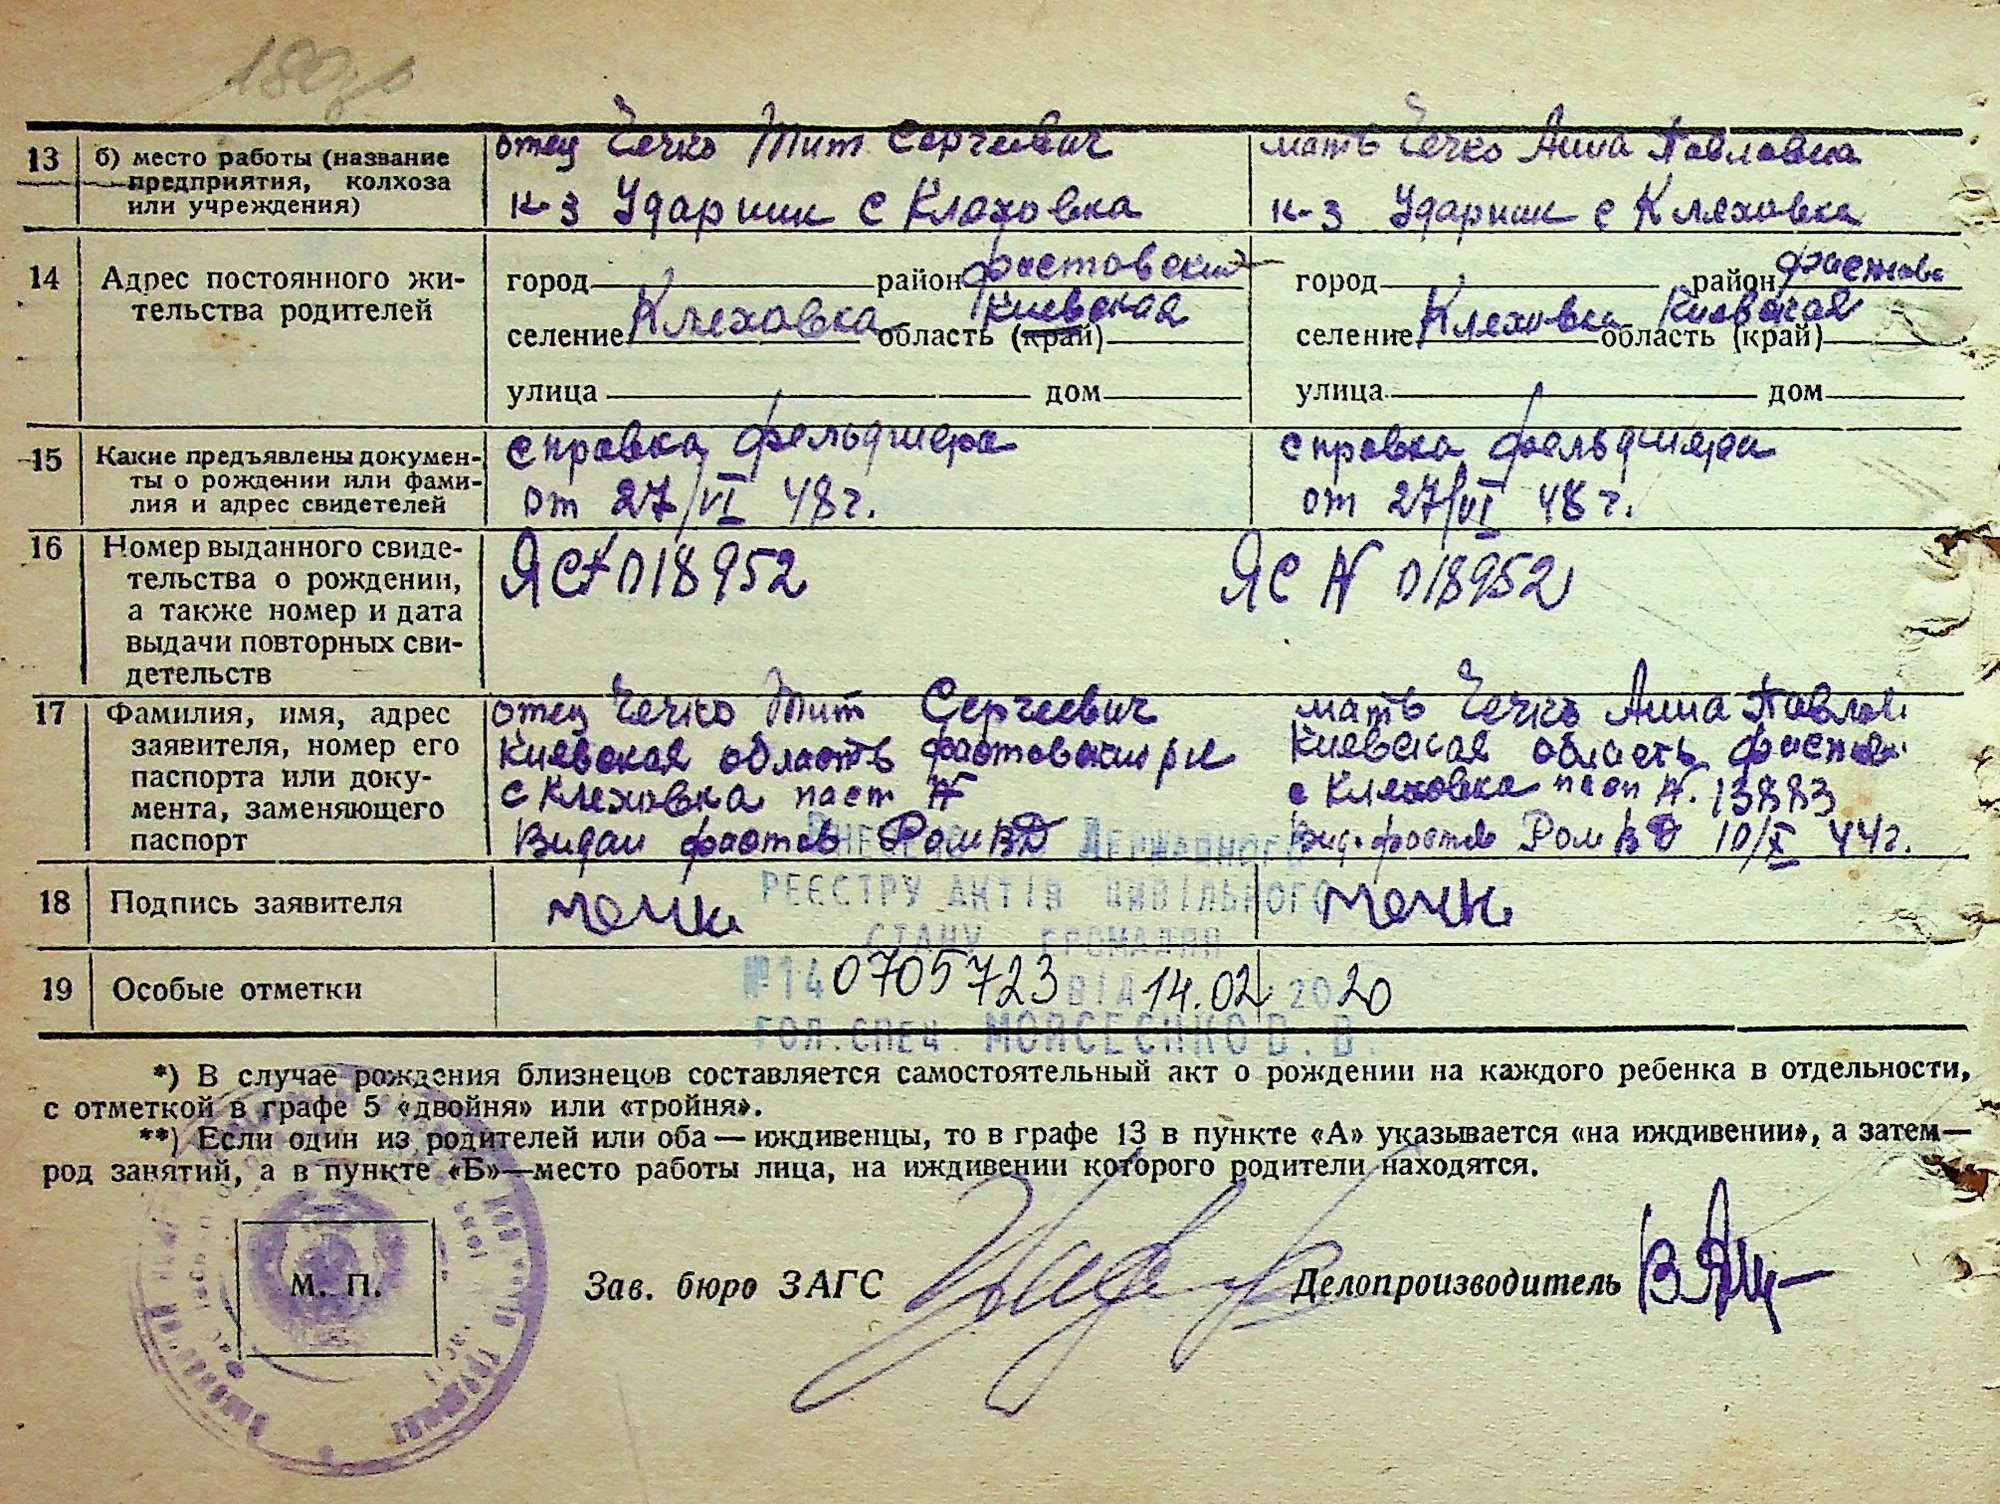 отец Чечко Тит Сергеевич
мать Чечко Анна Павловна
13
б) место работы (название
предприятия, колхоза
или учреждения)
к-з Ударник с Кляховка
к-з Ударник с Кляховка
14
Адрес постоянного жи-
тельства родителей
город район фастовский
селение Кляховка область (край) Киевская
улица дом
город район фастовс
селение Кляховка область (край) Киевская
улица дом
15
Какие предъявлены докумен-
ты о рождении или фами-
лия и адрес свидетелей
справка фельдшера
от 27/VI 48г.
справка фельдшера
от 27/VI 48г.
16
Номер выданного свиде-
тельства о рождении,
а также номер и дата
выдачи повторных сви-
детельств
ЯС № 018952
ЯС № 018952
17
Фамилия, имя, адрес
заявителя, номер его
паспорта или доку-
мента, заменяющего
паспорт
отец Чечко Тит Сергеевич
Киевская область фастовский р-н
с Кляховка пасп №
Видан фастов РомВД
мать Чечко Анна Павлов
Киевская область фастов
с Кляховка пасп №. 13883
Вид. фастов РомВД 10/X 44г.
18
Подпись заявителя
19
Особые отметки
ВНЕСЕНО ДО ДЕРЖАВНОГО
РЕЄСТРУ АКТІВ ЦИВІЛЬНОГО
СТАНУ ГРОМАДЯН
№14 0705723 ВІД 14.02 2020
ГОЛ. СПЕЦ. МОЙСЕЄНКО В. В.
*) В случае рождения близнецов составляется самостоятельный акт о рождении на каждого ребенка в отдельности,
с отметкой в графе 5 «двойня» или «тройня».
**) Если один из родителей или оба — иждивенцы, то в графе 13 в пункте «А» указывается «на иждивении», а затем—
род занятий, а в пункте «Б»—место работы лица, на иждивении которого родители находятся.
М. П.
Зав. бюро ЗАГС
Делопроизводитель